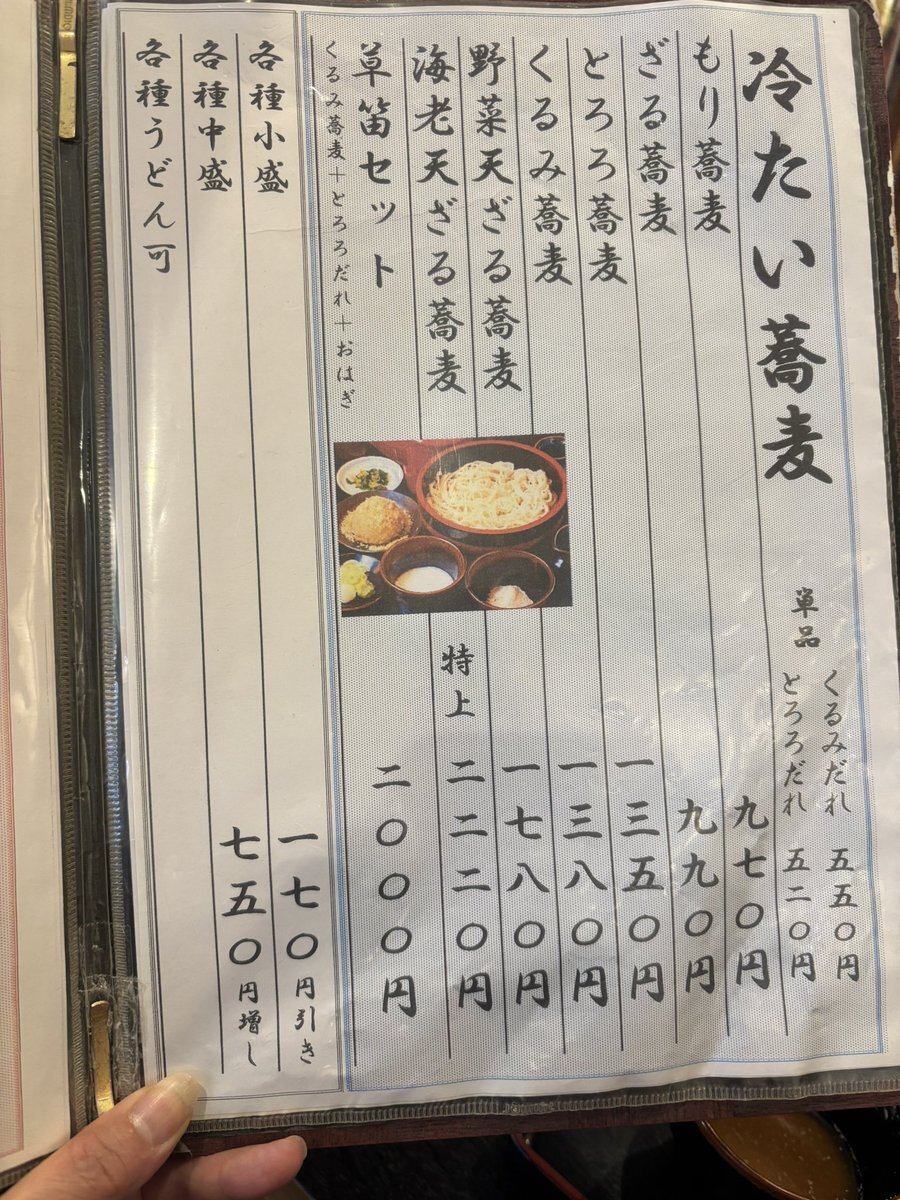 冷たい蕎麦
単品
くるみだれ 五五〇円
とろろだれ 五二〇円
もり蕎麦 九七〇円
ざる蕎麦 九九〇円
とろろ蕎麦 一三五〇円
くるみ蕎麦 一三八〇円
野菜天ざる蕎麦 一七八〇円
海老天ざる蕎麦 特上 二二二〇円
草笛セット 二〇〇〇円
くるみ蕎麦+とろろだれ+おはぎ
各種小盛 一七〇円引き
各種中盛 七五〇円増し
各種うどん可